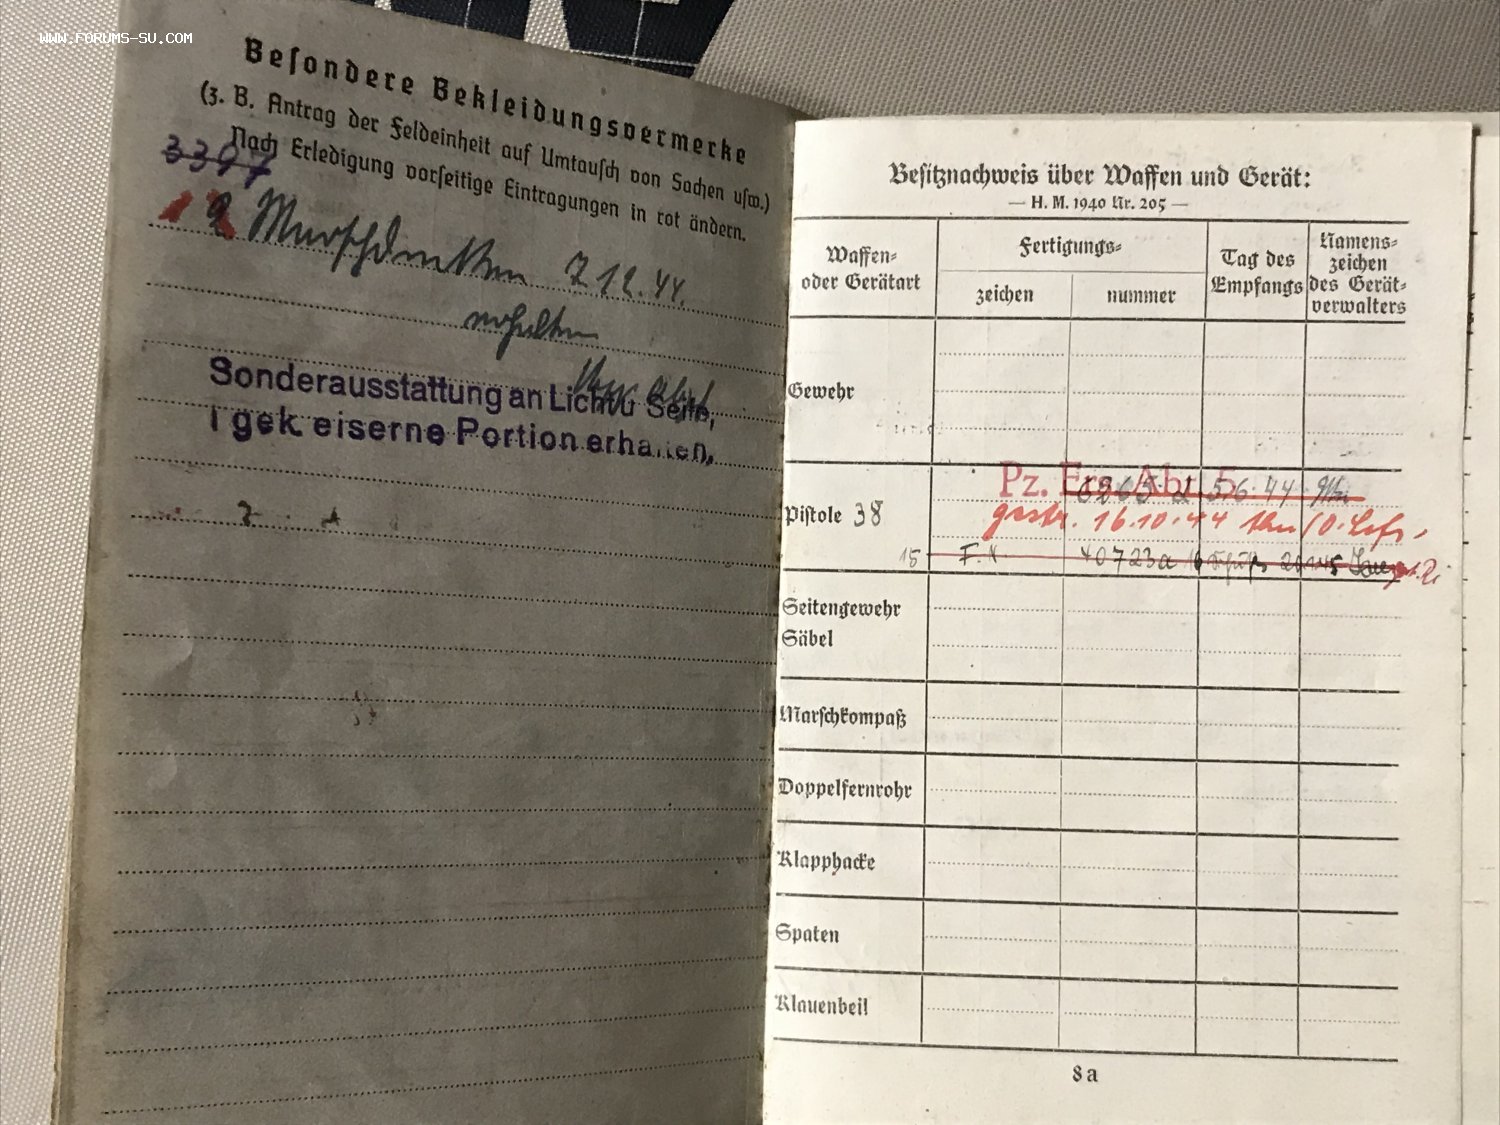 WWW.FORUMS-SU.COM
Besondere Bekleidungsvermerke
(z. B. Antrag der Feldeinheit auf Umtausch von Sachen usw.)
Nach Erledigung vorseitige Eintragungen in rot ändern.
3397
7 12. 44.
erhalten
Sonderausstattung an Lichtu Seife,
1 gek. eiserne Portion erhalten.
Besitznachweis über Waffen und Gerät:
— H. M. 1940 Nr. 205 —
Waffen- oder Gerätart
Fertigungs-
zeichen
nummer
Tag des Empfangs
Namens- zeichen des Gerät- verwalters
Gewehr
Pz. Ers. Abt. 5
6265 5 6. 44
Pistole 38
gestr. 16.10.44
15
4 0723a
Seitengewehr
Säbel
Marschkompaß
Doppelfernrohr
Klapphacke
Spaten
Klauenbeil
8a